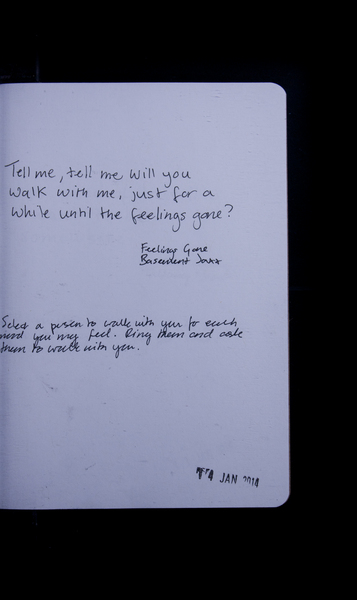 Tell me, tell me will you
walk with me, just for a
while until the feelings gone?
Feelings Gone
Basement Jaxx
Select a person to walk with you for each
mood you may feel. Ring them and ask
them to walk with you.
JAN 2014